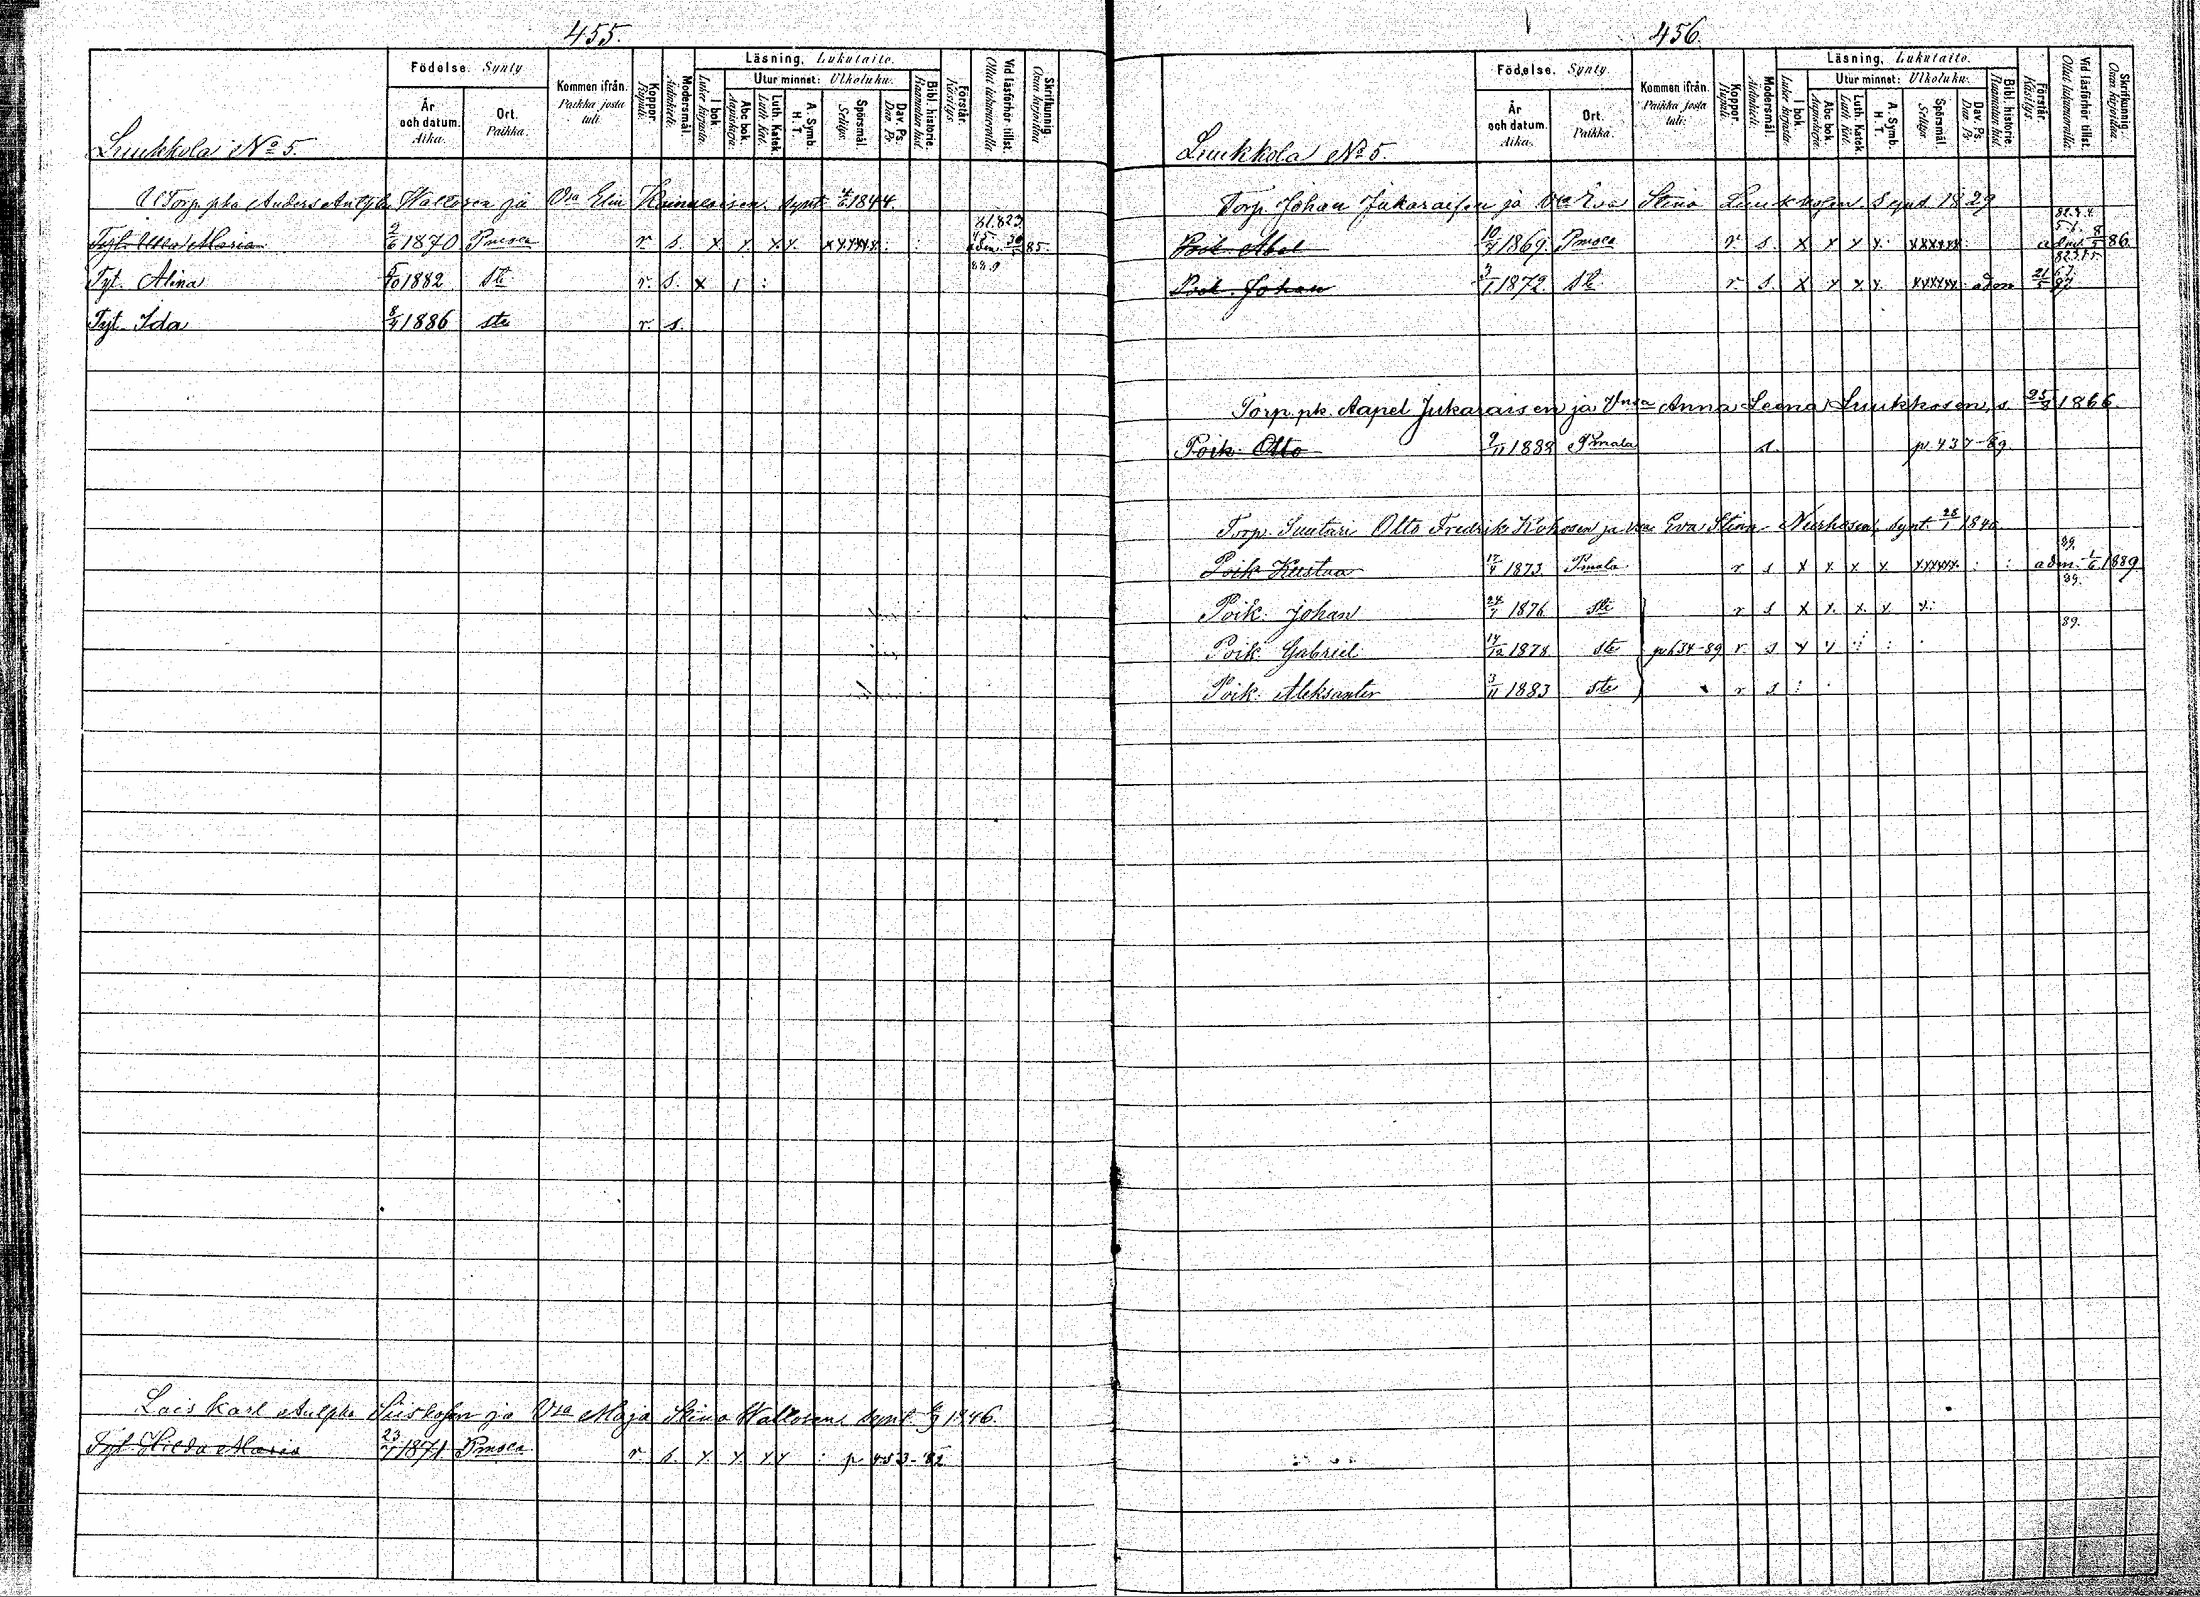 455.
Luukkola No 5.
Födelse. Synty
År och datum. Aika.
Ort. Paikka.
Kommen ifrån. Paikka josta tuli.
Koppor. Rupuli.
Modersmål. Äidinkieli.
Läsning, Lukutaito.
I bok. Lukee kirjasta.
Utur minnet: Ulkoluku.
Abc bok. Aapiskirja.
Luth. Katek. Luth. Kat.
A. Symb. H. T.
Spörsmål. Selitys.
Dav. Ps. Dav. Ps.
Bibl. historie. Raamatun hist.
Förstår. Käsitys.
Vid läsförhör tillst. Ollut lukuvuorolla
Skrifkunnig. Osaa kirjoittaa
Torp. pka Anders Anlph Wallosen ja Vsa Elin Kainulaisen synt 1844.
81.823
Tyt. Maria 2/6 1870 Pmaa r. s. x x. x x. xxxxx : : adm. 30/5 85.
88.9
Tyt. Alina 5/10 1882 ste r. s. x ı :
Tyt. Ida 8/4 1886 ste r. s.
Lois Karl Aulphs Siiskosen ja Vsa Maja Stina Wallosen, synt. 1846.
Tyt Hilda Maria 23/7 1871 Pmaa r s. x x. x x : p 453-82
456.
Luukkola No 5.
Födelse. Synty.
År och datum. Aika.
Ort. Paikka.
Kommen ifrån. Paikka josta tuli:
Koppor. Rupuli.
Modersmål. Äidinkieli.
Läsning, Lukutaito.
I bok. Lukee kirjasta.
Utur minnet: Ulkoluku.
Abc bok. Aapiskirja.
Luth. Katek. Luth. Kat.
A. Symb. H. T.
Spörsmål Selitys.
Dav. Ps. Dav. Ps.
Bibl. historie. Raamatun hist.
Förstår. Käsitys.
Vid läsförhör tillst. Ollut lukuvuorolla.
Skrifkunnig. Osaa kirjoittaa.
Torp. Johan Jukaraisen ja Vsa Eva Stina Luukkosen Synt 1829
Poik. Abel 10/4 1869. Pmaa r. s. x x x x. xxxxxx adm. 8/5 86.
Poik. Johan 3/1 1872. ste r s. x x x x. xxxxxx adm 21/5 87.
Torp. pk. Aapel Jukaraisen ja Vnsa Anna Leena Luukkosen, s. 25/3 1866.
Poik: Otto 9/11 1888 Pmala s. p. 437-89.
Torp. Suutari Otto Fredrik Kokosen ja vsa Eva Stina Nurhosen, synt 28/1 1840
89.
Poik Kustaa 17/4 1873. Pmala r s x x. x x xxxxxx. : : adm. 1/6 1889
89.
Poik: Johan 24/7 1876 ste r s x x. x. x x.:
89.
Poik: Gabriel 14/12 1878 ste p 634-89 r. s x x : :
Poik: Aleksanter 3/11 1883 ste r s :